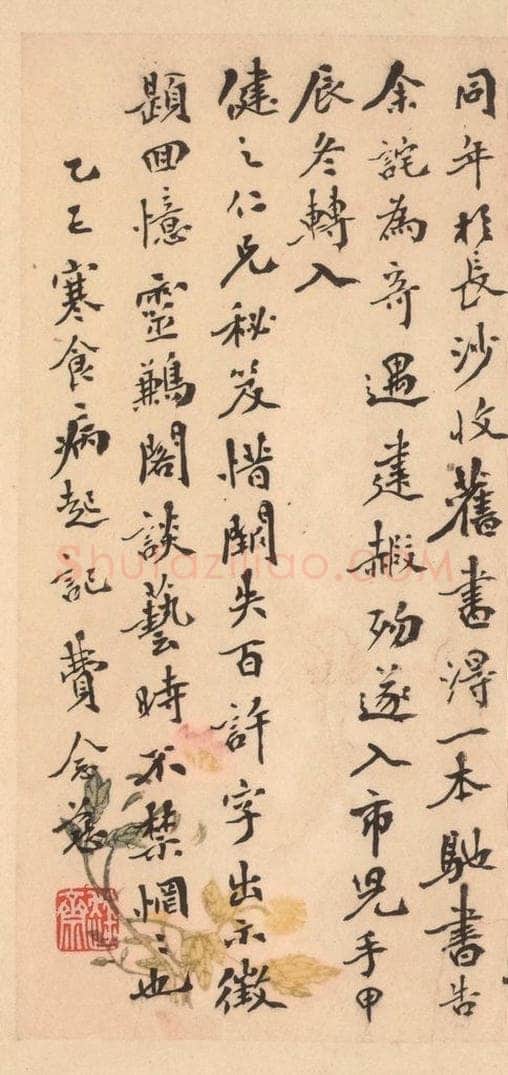 同年於長沙收舊書得一本馳書告
余詫為奇遇建赮歿遂入市児手甲
辰冬轉入
健之仁兄秘笈惜闕失百許字出示徵
題回憶靈鶼閣談藝時不禁惘〻也
乙巳寒食病起記費念慈
Shufaziliao.COM